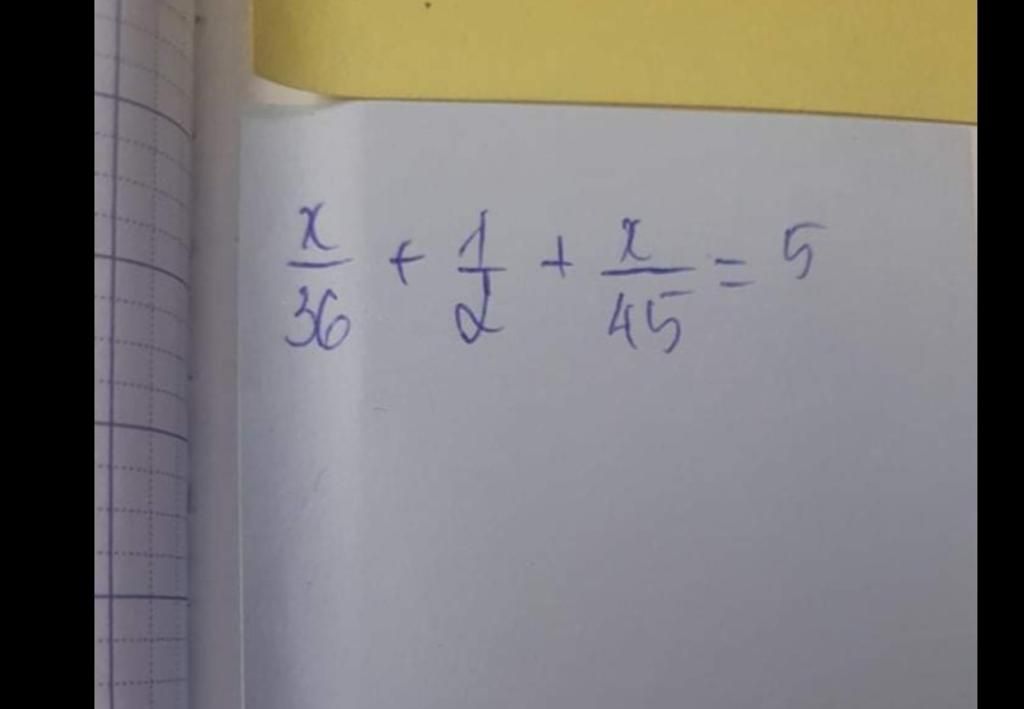 x/36 + 1/2 + x/45 = 5